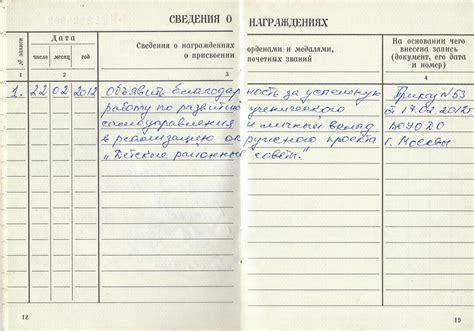 СВЕДЕНИЯ О НАГРАЖДЕНИЯХ
№ записи
Дата
число месяц год
Сведения о награждениях орденами и медалями,
о присвоении почетных званий
На основании чего
внесена запись
(документ, его дата
и номер)
1 2 3 4
1. 22 02 2012 Объявить благодарность за успешную Приказ N 53
работу по развитию ученического от 17.02.2012г
самоуправления и личный вклад ВОУО ДО
в реализацию окружного проекта г. Москвы
"Детские районные советы."
18
19